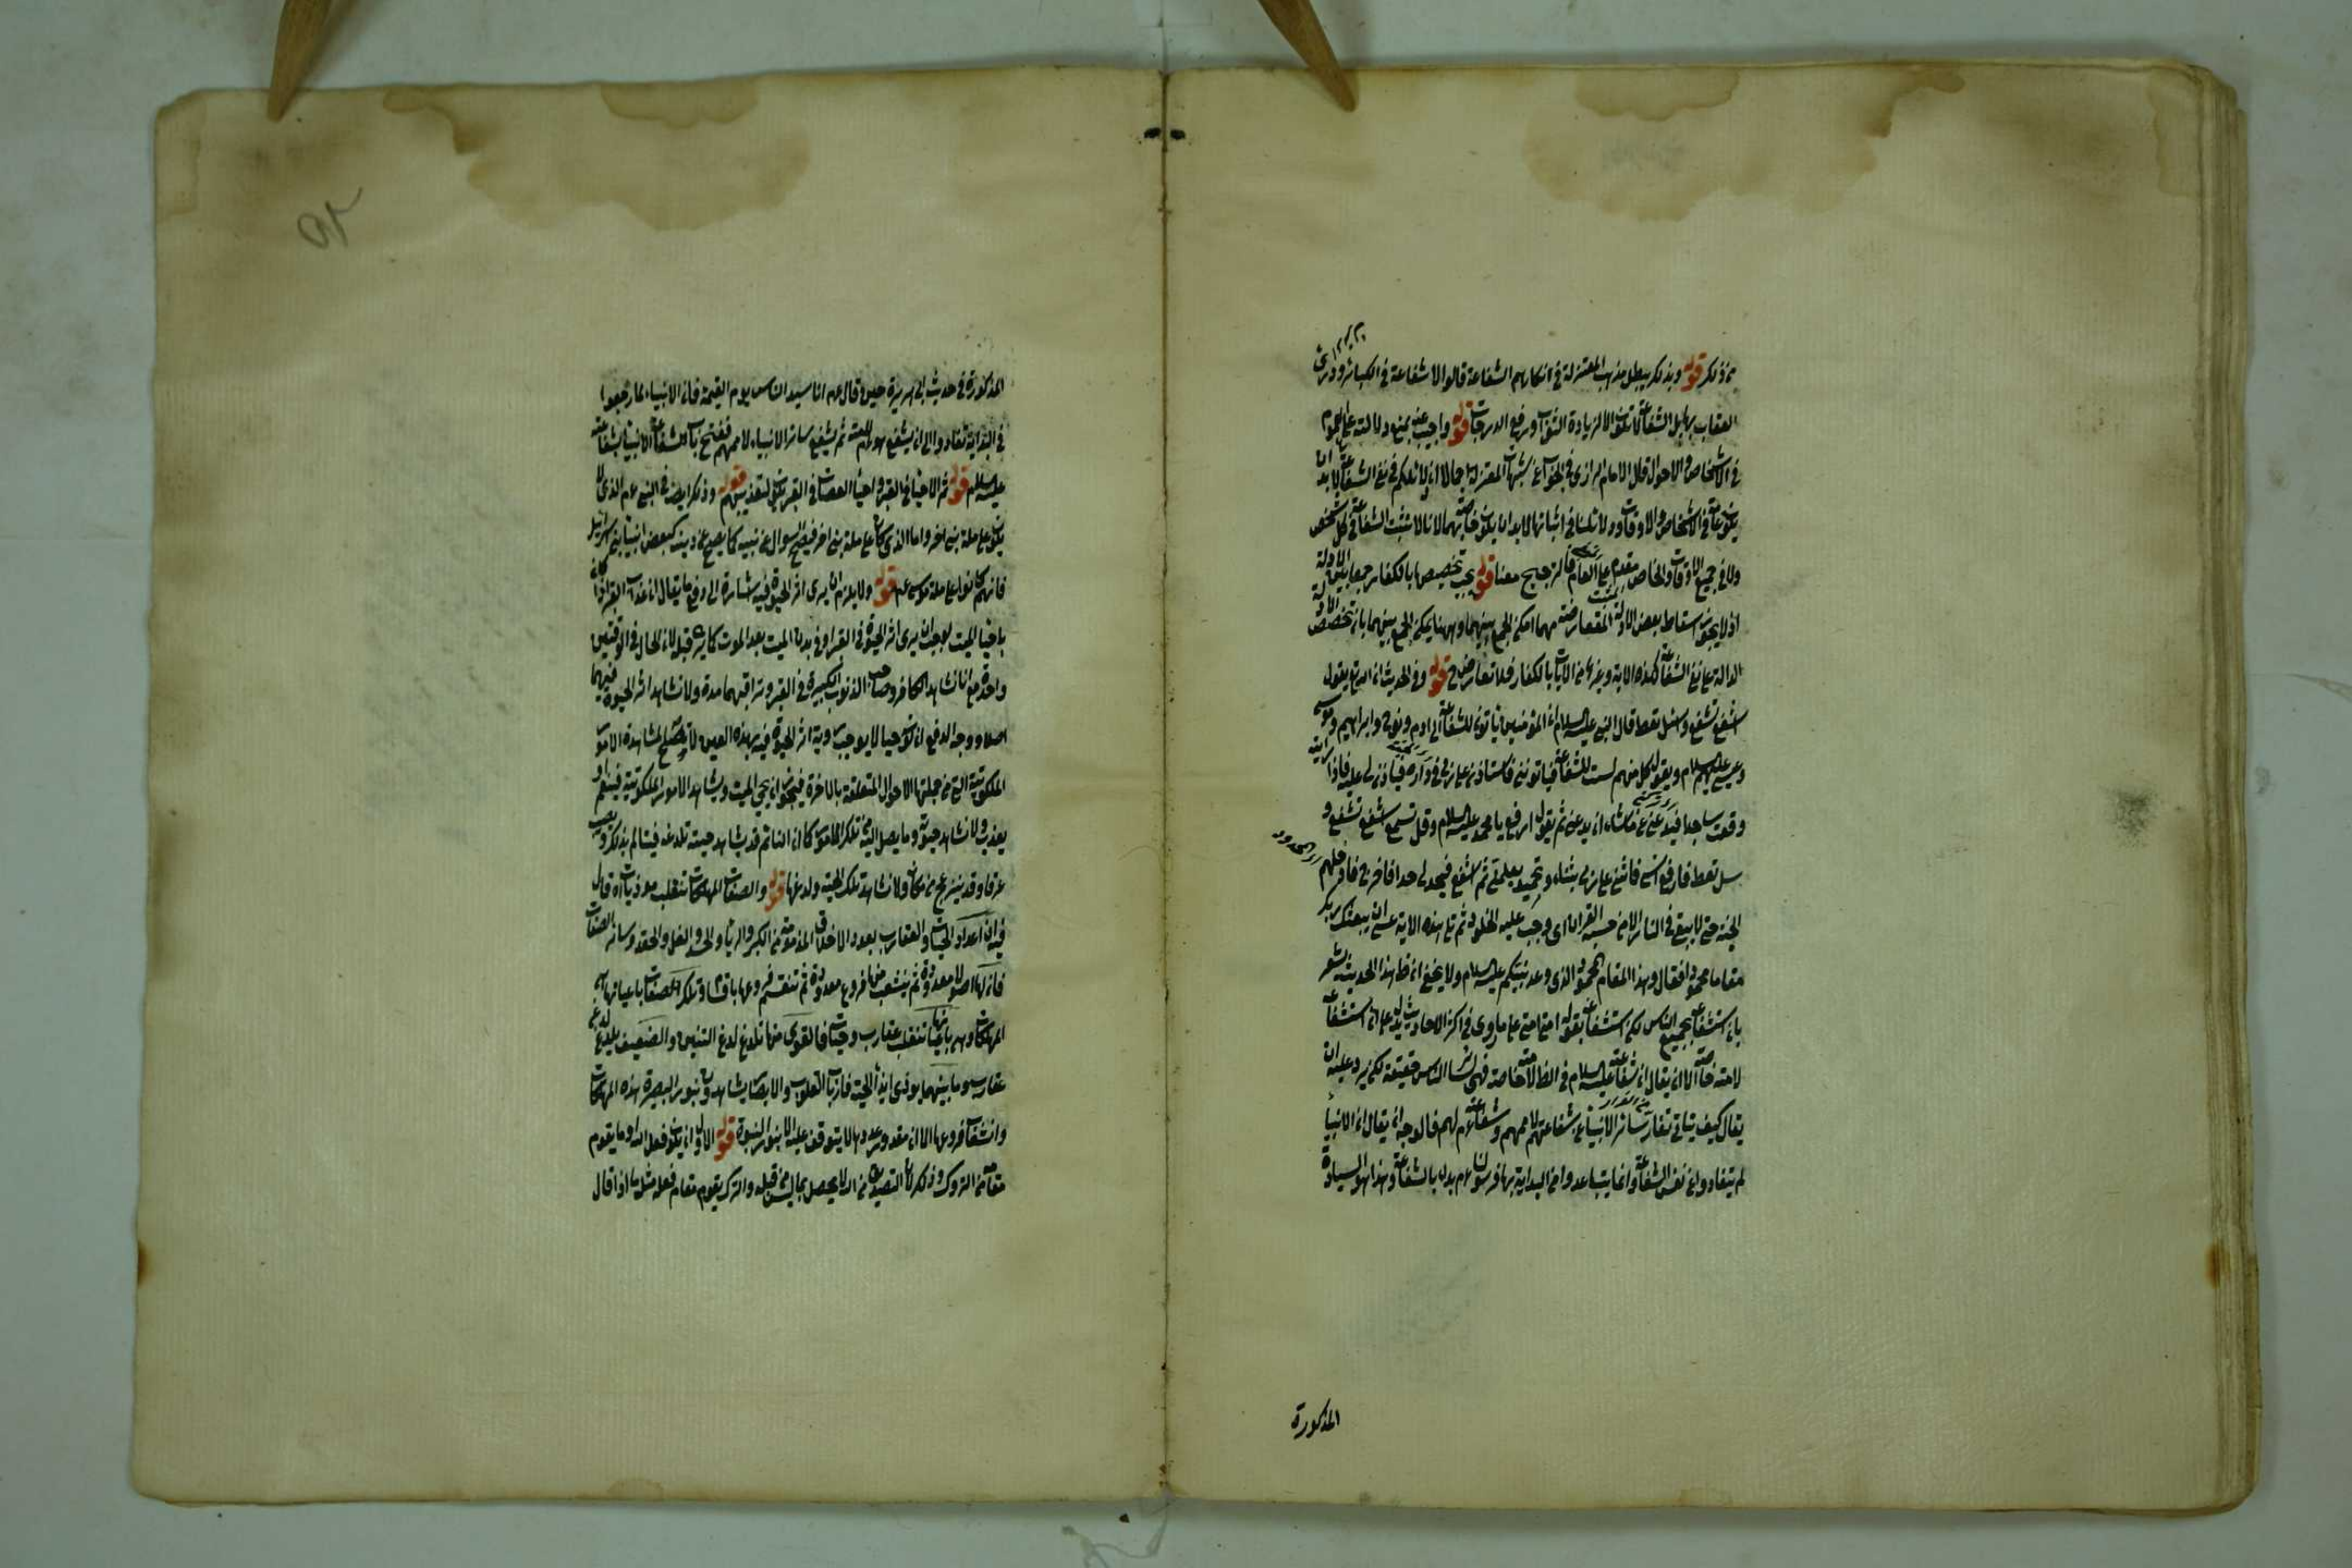 من ذلك قوله وبذلك يبطل مذهب المعتزلة في انكارهم الشفاعة قالوا لا شفاعة في الكبائر ودرء
العقاب بها بل الشفاعة لا تكون الا لزيادة الثواب ورفع الدرجات قوله واجيب عنه بمنع دلالته على العموم
في الاشخاص والاحوال قال الامام الرازي في الجواب عن شبهات المعتزلة اجمالا ان دلائلكم في نفي الشفاعة لا بد ان
يكون عامة في الاشخاص والاوقات ودلائلنا في اثباتها لا بد ان يكون خاصة بهما لانا لا نثبت الشفاعة في كل شخص
ولا في جميع الاوقات والخاص مقدم على العام فالترجيح معنا قوله يجب تخصيصها بالكفار جمعا بين الادلة
اذ لا يجوز اسقاط بعض الادلة المتعارضة مهما امكن الجمع بينهما وههنا يمكن الجمع بينهما بان تخصص الادلة
الدالة على نفي الشفاعة كهذه الاية وغيرها من الايات بالكفار فلا تعارض ح قوله وفي الحديث ان الله تع يقول
اشفع تشفع وسل تعط قال النبي عليه السلام ان المؤمنين يأتون للشفاعة الى ادم ونوح وابراهيم وموسى
وعيسى عليهم السلام ويقول كل منهم لست للشفاعة فيأتونني فاستأذن على ربي في داره فيأذن لي عليه فاذا رايته
وقعت ساجدا فيدعني ما شاء ان يدعني ثم يقول ارفع يا محمد عليه السلام وقل تسمع اشفع تشفع و
سل تعط فارفع رأسي فاثني على ربي بثناء وتحميد يعلمني ثم اشفع فيحد لي حدا فاخرج فادخلهم
الجنة حتى لا يبقى في النار الا من حبسه القران اي وجب عليه الخلود ثم تلا هذه الاية عسى ان يبعثك ربك
مقاما محمودا فقال وهذا المقام المحمود الذي وعد نبيكم عليه السلام ولا يخفى ان ظ هذا الحديث يشعر
بان استشفاعه بجميع الناس لكن استشفاعه بقوله امتي امتي على ما روي في اكثر الاحاديث يدل على ان استشفاعه
لامته خاصة الا ان يقال ان شفاعته عليه السلام في الظ لامته خاصة فهي لسائر الناس حقيقة لكن يرد عليه ان
يقال كيف يتأتى تقاعد سائر الانبياء عن شفاعتهم لاممهم وشفاعته لهم فالوجه ان يقال ان الانبياء
لم يتقاعدوا عن نفس الشفاعة وانما يتباعدوا من البداية بها فرسولنا عم بدء بالشفاعة وهذا هو السيادة
المذكورة
المذكورة في حديث ابي هريرة حين قال عم انا سيد الناس يوم القيمة فان الانبياء لما رجعوا
في البداية تقاعدوا الى ان يشفع هو لامته ثم يشفع سائر الانبياء لاممهم ففتح باب الشفاعة للانبياء بشفاعته
عليه السلام قوله ثم الاحياء في القبر واحياء العصاة في القبر يكون لتعذيبهم قوله وذكر ايضا في النبي عم الذي لا
يكون على ملة نبي اخر واما الذي كان على ملة نبي اخر فيصح السوال عن نبيه كما يصح عن دينه كبعض انبياء بني اسرائيل
فانهم كانوا على ملة موسى عم قوله ولا يلزم ان يرى اثر الحيوة فيه اشارة الى دفع ما يقال ان عذاب القبر اذا كان
باحياء الميت لوجب ان يرى اثر الحيوة في القبر او في بدن الميت بعد الموت كما يرى قبله لان الحال في الوقتين
واحدة مع انا نشاهد الكافر وصاحب الذنوب الكبيرة في القبر ونراقبهما مدة ولا نشاهد اثر الحيوة فيهما
اصلا ووجه الدفع ان كونه حيا لا يوجب رؤية اثر الحيوة فيه بهذه العين لا تصلح لمشاهدة الامور
الملكوتية التي من جملتها الاحوال المتعلقة بالاخرة فيجوز ان يحيى الميت ويشاهد الامور الملكوتية فينعم او
يعذب ولا نشاهد حيوته وما يصل اليه من تلك الامور كما ان النائم قد يشاهد حية تلدغه فيتألم بذلك ويعرق
عرقا وقد ينزعج من مكانه ولا نشاهد تلك الحية ولدغها قوله والصفات المهلكات تنقلب موذيات اه قال
فيه ان اعداد الحيات والعقارب بعدد الاخلاق المذمومة من الكبر والرياء والحسد والغل والحقد وسائر الصفات
فان لها اصولا معدودة ثم يتشعب منها فروع معدودة ثم تنقسم فروعها باقسام وتلك الصفات باعيانها هي
المهلكات وهي باعيانها تنقلب عقارب وحيات فالقوي منها تلدغ لدغ التنين والضعيف يلدغ لدغ
عقارب وما بينهما يوذي ايذاء الحية فارباب القلوب والابصار يشاهدون بنور البصيرة هذه المهلكات
وانشعاب فروعها الا ان مقدار عددها لا يتوقف عليه الا بنور النبوة قوله الاول ان يكون فعل الله او ما يقوم
مقامه من التروك وذكر لان التصديق من الله لا يحصل بما ليس من قبله والترك يقوم مقام فعله مثل ما اذا قال